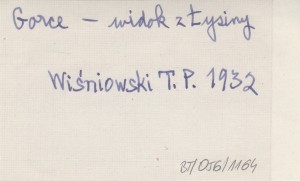 Gorce – widok z Łysiny
Wiśniowski T.P. 1932
87/056/1164